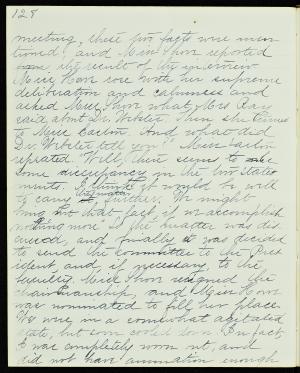 128
meeting, these two facts were men
tioned, and Miss reported
the result of the interview
Miss Horr rose with her supreme
deliberation and calmness and
asked Miss what Mrs Ray
said about Dr. Webster. Then she turned
to Miss Carlow. And what did
Dr. Webster tell you?" Miss Carlow
repeated. "Well, there seems to
some discrepancy in the two state
ments. I think it would be well
to carry further. We might
bring out that fact, if we accomplish
nothing more So the matter was dis
cussed, and finally it was decided
to send the committee to the Pres
ident, and, if necessary, to the
faculty. Miss resigned the
chairmanship, and Miss Horr
was nominated to fill her place.
We were in a somewhat agitated
state, but soon cooled down In fact
I was completely worn out, and
did not have animation enough